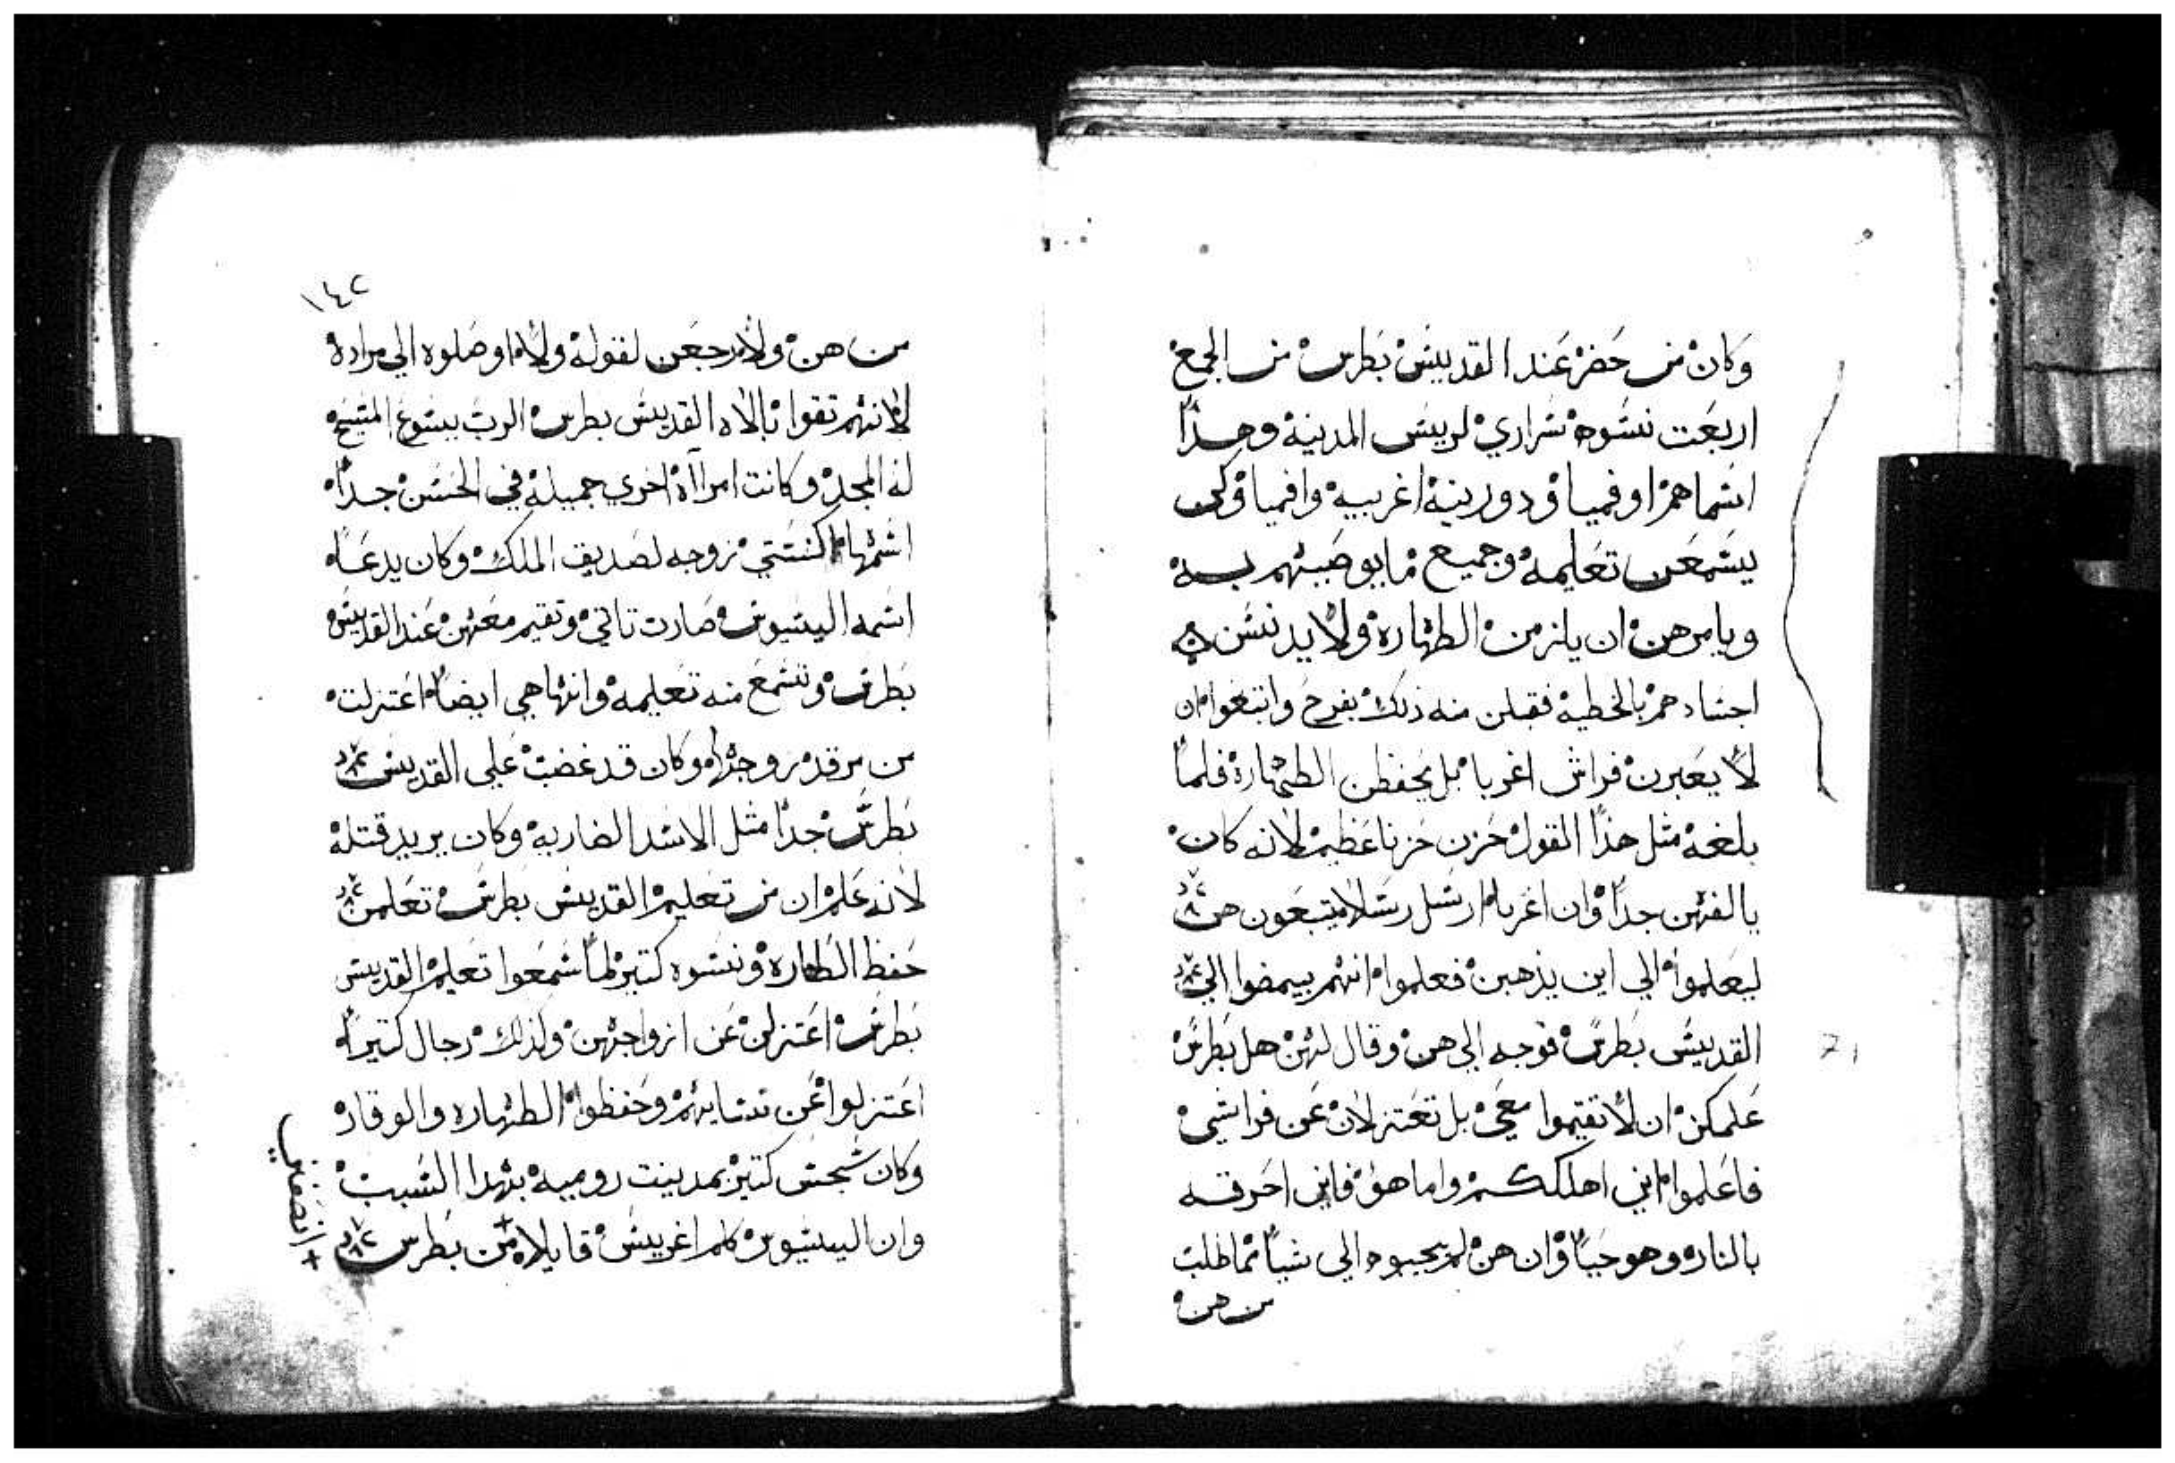 وكان من حضر عند القديس بطرس من الجمع
اربعت نسوه سراري لرييس المدينه وهذا
اسماهم اوفميا ودورينه اغريبيه وافميا وكن
يسمعن تعليمه وجميع ما يوصيهم به
ويامرهن ان يلزمن الطهاره ولا يدنسن
اجسادهم بالخطيه فقبلن منه ذلك بفرح وابتغوا ان
لا يعبرن فراش اغربا بل يحفظن الطهاره فلما
بلغه مثل هذا القول حزن حزنا عظيم لانه كان
يالفهن جدا وان اغربا ارسل رسلا يتبعون هن
ليعلموا الي اين يذهبن فعلموا انهم بيمضوا الي
القديس بطرس فوجه الي هن وقال لهن هل بطرس
علمكن ان لا تقيموا معي بل تعتزلان عن فراشي
فاعلموا انني اهلككم واما هو فاني احرقه
بالناره وهو حيا وان هن لم يجيبوه الي شيا مما طلب
من هن
١٤٢
من هن ولا رجعن لقوله ولا اوصلوه الي مراده
لانهم تقوا بالاه القديس بطرس الرب يسوع المسيح
له المجد وكانت امراة اخري جميله في الحسن جدا
اسمها اكسنتي زوجه لصديق الملك وكان يدعا
اسمه البسيوس صارت تاتي وتقيم معهن عند القديس
بطرس وتسمع منه تعليمه وانها هي ايضا اعتزلت
من مرقد زوجها وكان قد غضب علي القديس
بطرس جدا مثل الاسد الضاريه وكان يريد قتله
لانه علم ان من تعليم القديس بطرس تعلمن
حفظ الطهاره ونسوه كتير لما سمعوا تعليم القديس
بطرس اعتزلن عن ازواجهن ولذلك رجال كتيرا
اعتزلوا عن نسايهم وحفظوا الطهاره والوقار
وكان سجس كتير بمدينت روميه بهدا السبب
وان البسيوس كلم اغريبس قايلا + من بطرس
+ انصفني